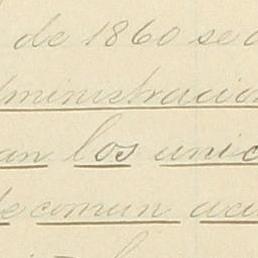 de 1860 se
ministracion
an los unic
de comun acu